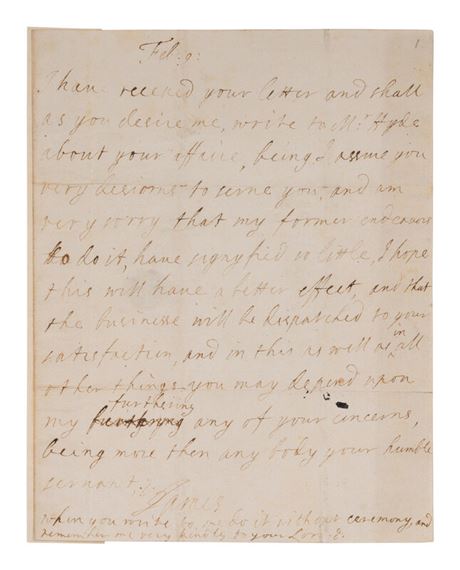 1
Feb: 9:
I have receued your letter and shall
as you desire me, write to Mr Hyde
about your affaire, being I assure you
very desiorns to serue you, and am
very sorry that my former endeauors
to do it, haue signyfied so little, I hope
this will have a better effect, and that
the businesse will be dispatched to your
satisfaction, and in this as well as in all
other things you may depend upon
my furthering any of your concerns,
being more then any body your humble
servant,
James
when you write to me do it without ceremony, and
remember me very kindly to your Lor: